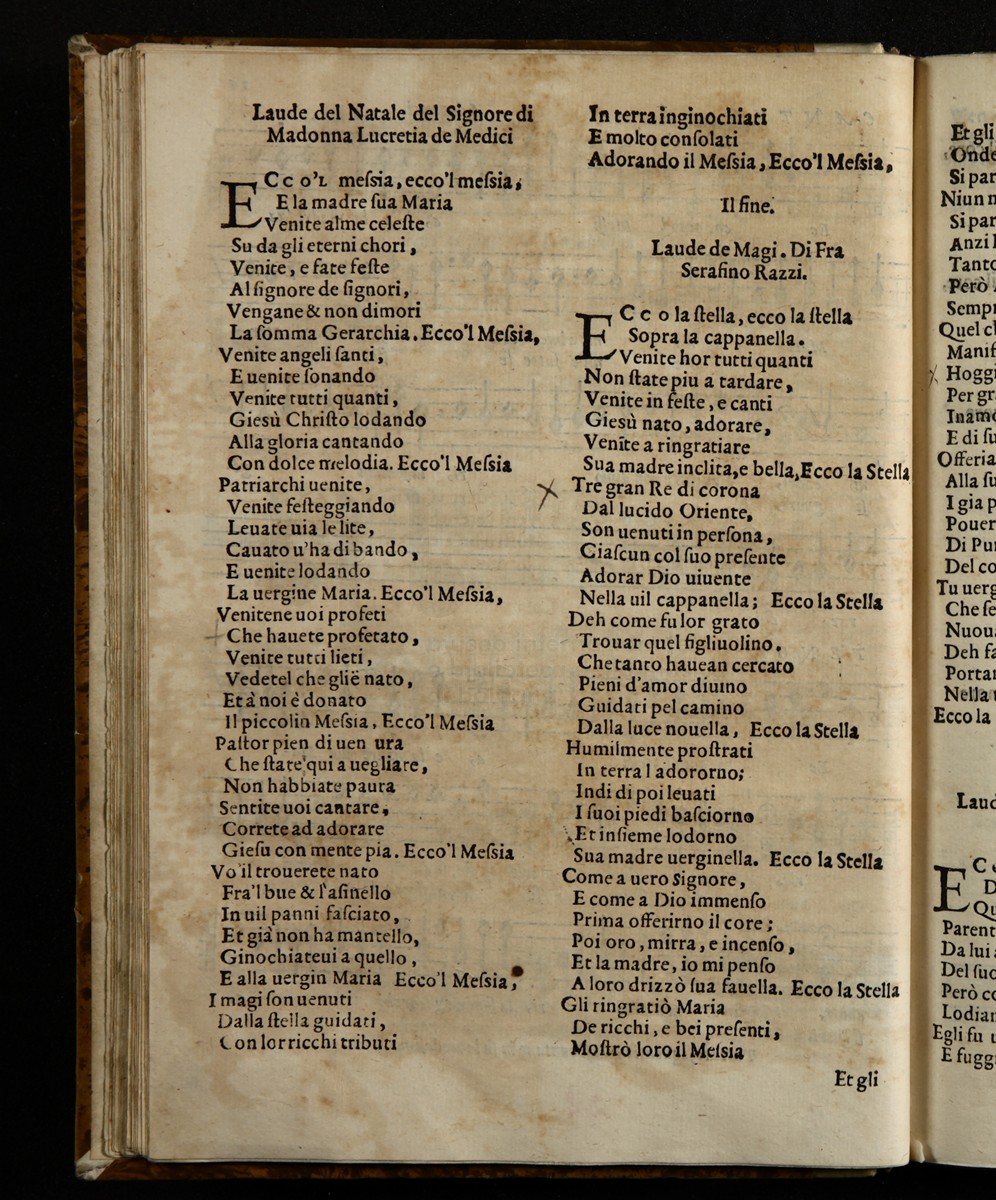 Laude del Natale del Signore di
Madonna Lucretia de Medici
ECc o'L meſsia, ecco'l meſsia,
E la madre ſua Maria
Venite alme celeſte
Su da gli eterni chori,
Venite, e fate feſte
Al ſignore de ſignori,
Vengane & non dimori
La ſomma Gerarchia. Ecco'l Meſsia,
Venite angeli ſanti,
E uenite ſonando
Venite tutti quanti,
Giesù Chriſto lodando
Alla gloria cantando
Con dolce melodia. Ecco'l Meſsia
Patriarchi uenite,
Venite feſteggiando
Leuate uia le lite,
Cauato u'ha di bando,
E uenite lodando
La uergine Maria. Ecco'l Meſsia,
Venitene uoi profeti
Che hauete profetato,
Venite tutti lieti,
Vedetel che gliè nato,
Et à noi è donato
Il piccolin Meſsia, Ecco'l Meſsia
Paſtor pien di uen ura
Che ſtate qui a uegliare,
Non habbiate paura
Sentite uoi cantare,
Correte ad adorare
Gieſu con mente pia. Ecco'l Meſsia
Vo il trouerete nato
Fra'l bue & l'aſinello
In uil panni faſciato,
Et già non ha mantello,
Ginochiateui a quello,
E alla uergin Maria Ecco'l Meſsia,
I magi ſon uenuti
Dalla ſtella guidati,
Con lor ricchi tributi
In terra inginochiati
E molto conſolati
Adorando il Meſsia, Ecco'l Meſsia,
Il fine.
Laude de Magi. Di Fra
Serafino Razzi.
ECc o la ſtella, ecco la ſtella
Sopra la cappanella.
Venite hor tutti quanti
Non ſtate piu a tardare,
Venite in feſte, e canti
Giesù nato, adorare,
Venite a ringratiare
Sua madre inclita, e bella, Ecco la Stella
Tre gran Re di corona
Dal lucido Oriente,
Son uenuti in perſona,
Ciaſcun col ſuo preſente
Adorar Dio uiuente
Nella uil cappanella; Ecco la Stella
Deh come fu lor grato
Trouar quel figliuolino.
Che tanto hauean cercato
Pieni d'amor diuino
Guidati pel camino
Dalla luce nouella, Ecco la Stella
Humilmente proſtrati
In terra l adororno;
Indi di poi leuati
I ſuoi piedi baſciorno
Et inſieme lodorno
Sua madre uerginella. Ecco la Stella
Come a uero Signore,
E come a Dio immenſo
Prima offerirno il core;
Poi oro, mirra, e incenſo,
Et la madre, io mi penſo
A loro drizzò ſua fauella. Ecco la Stella
Gli ringratiò Maria
De ricchi, e bei preſenti,
Moſtrò loro il Meſsia
Et gli
Et gli
Onde
Si par
Niun n
Si par
Anzi
Tanto
Però
Semp
Quel
Manif
Hoggi
Per gr
Inamo
E di ſu
Offeria
Alla ſu
I gia p
Pouer
Di Pu
Del co
Tu uerg
Che ſe
Nuou
Deh fa
Porta
Nella
Ecco la
Laud
EC
D
Qu
Parent
Da lui
Del ſuo
Però co
Lodiam
Egli fu
E fugg